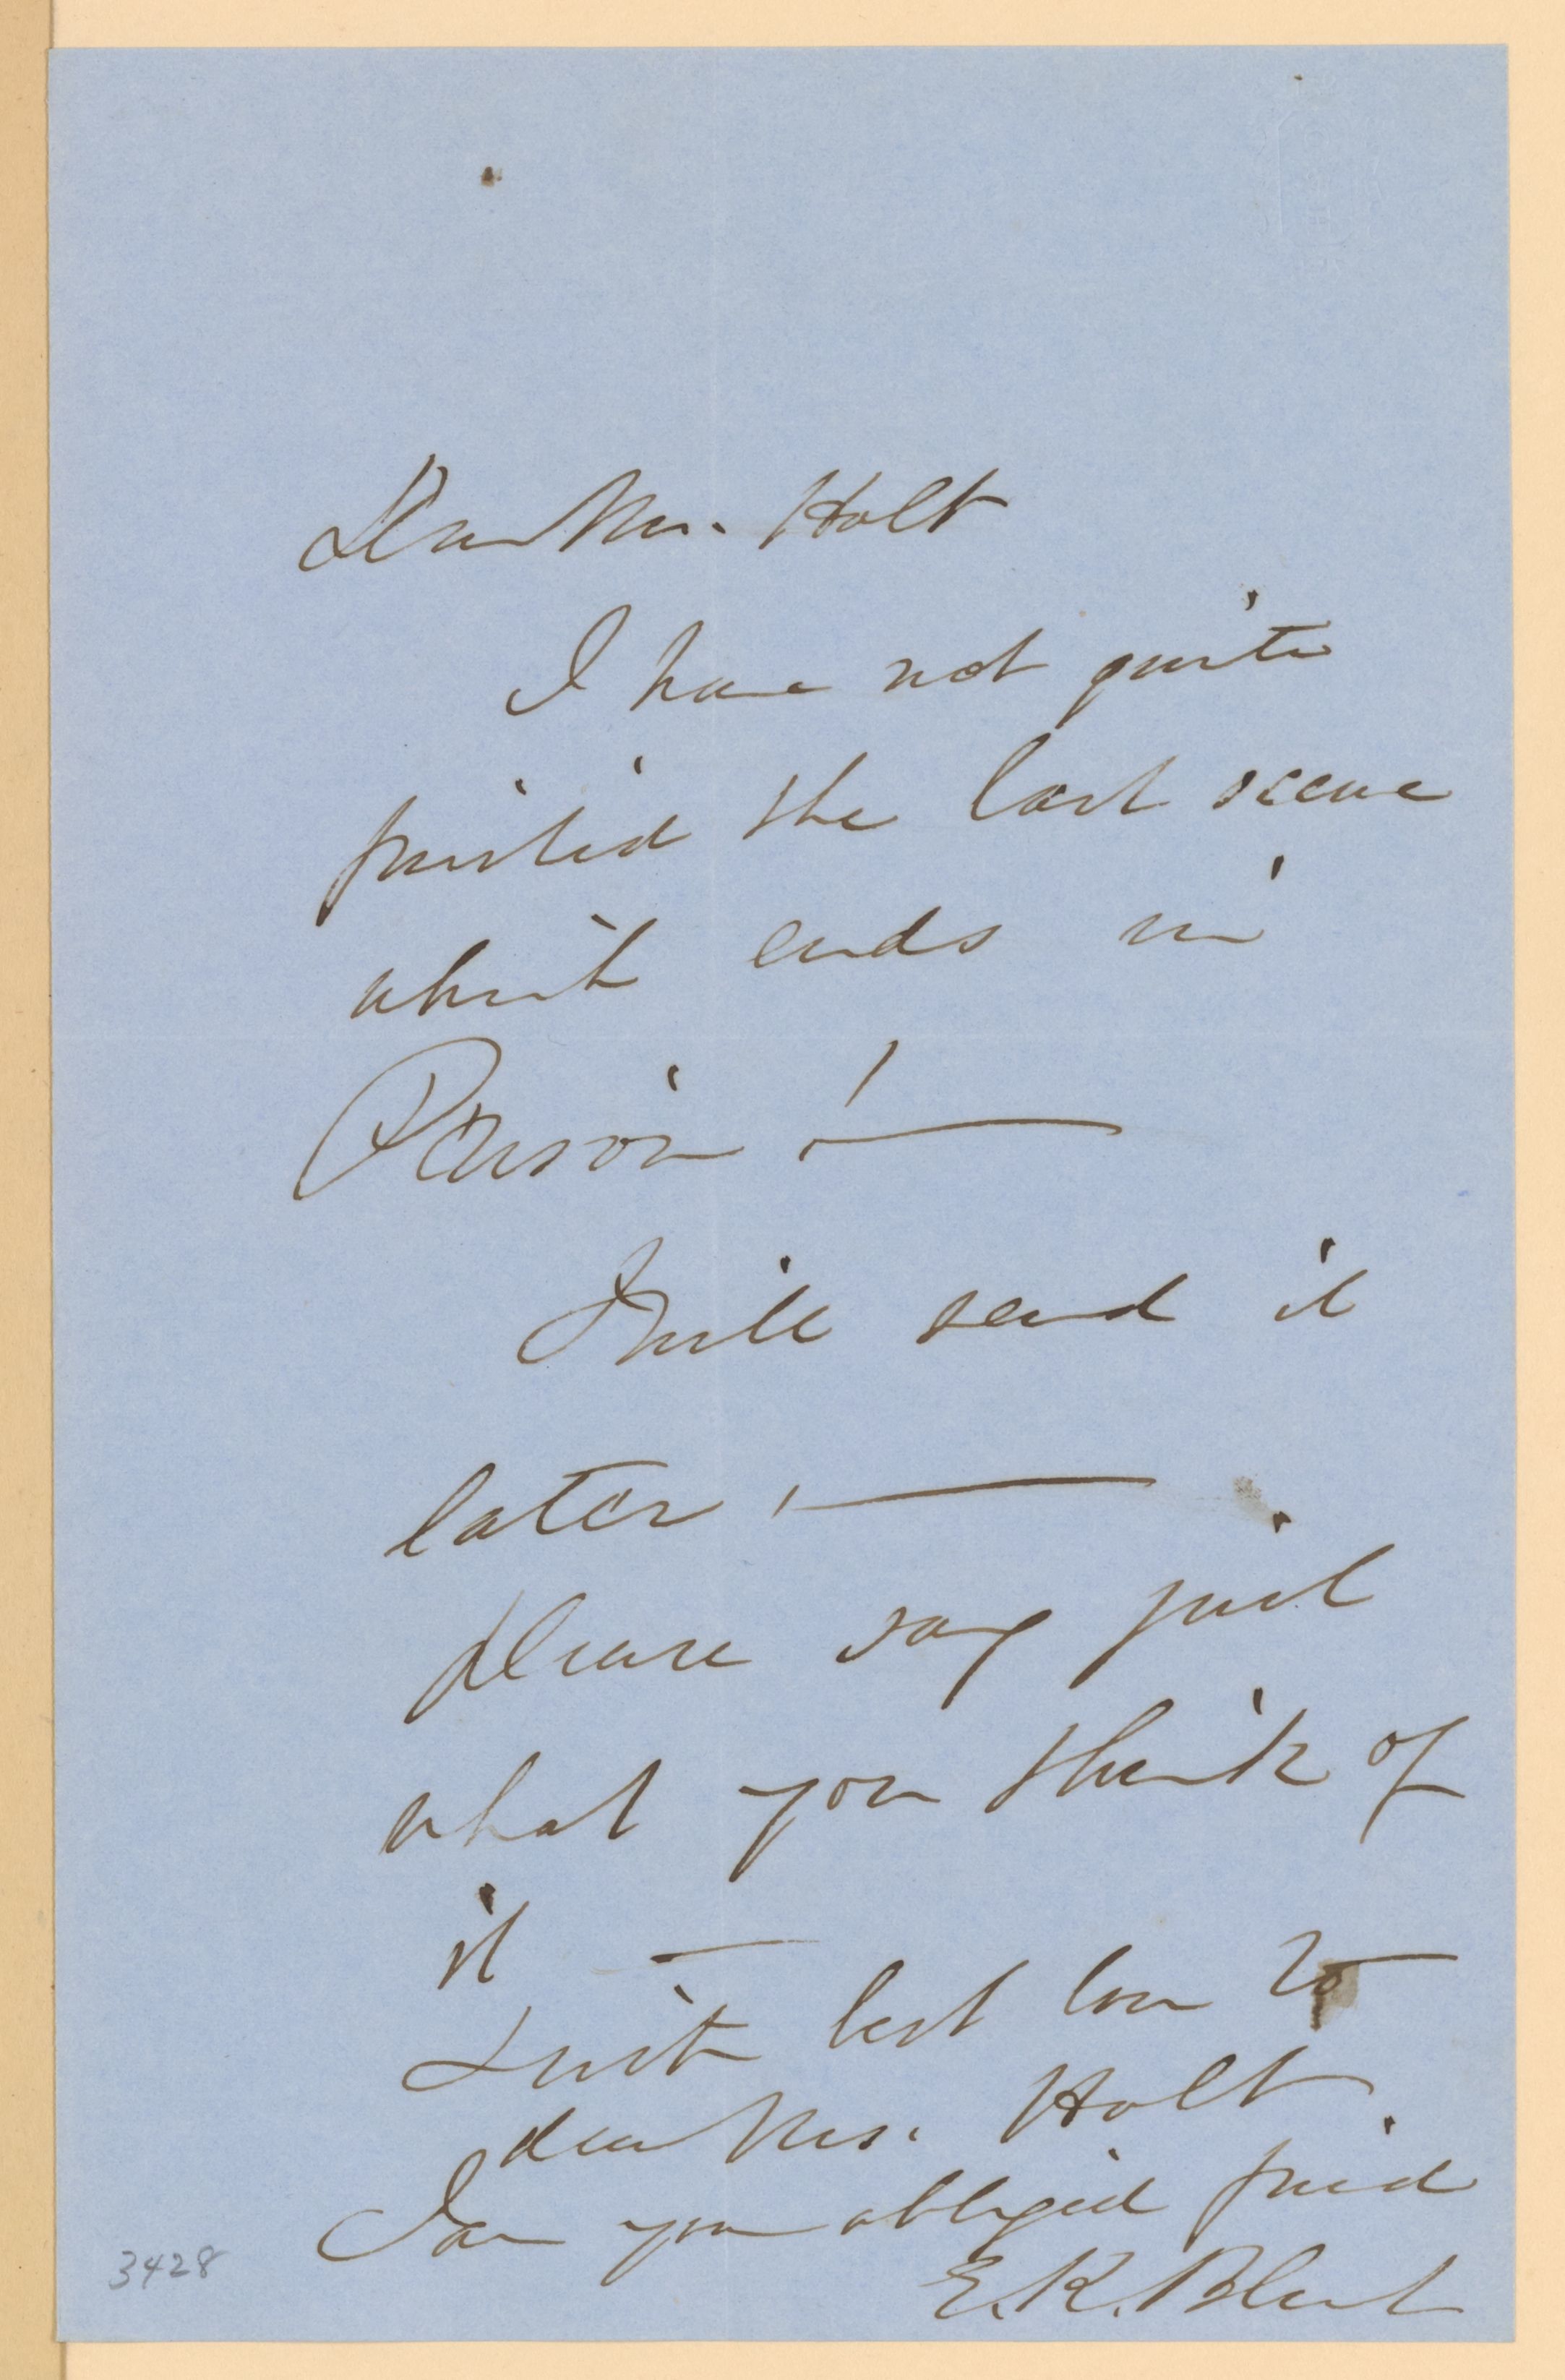 Dear Mr. Holt
I have not quite
finished the last scene
which ends in
Poison! —
I will send it
later, —
Please say just
what you think of
it —
With best love to
dear Mrs. Holt
I am your obliged friend
E. K.
3428